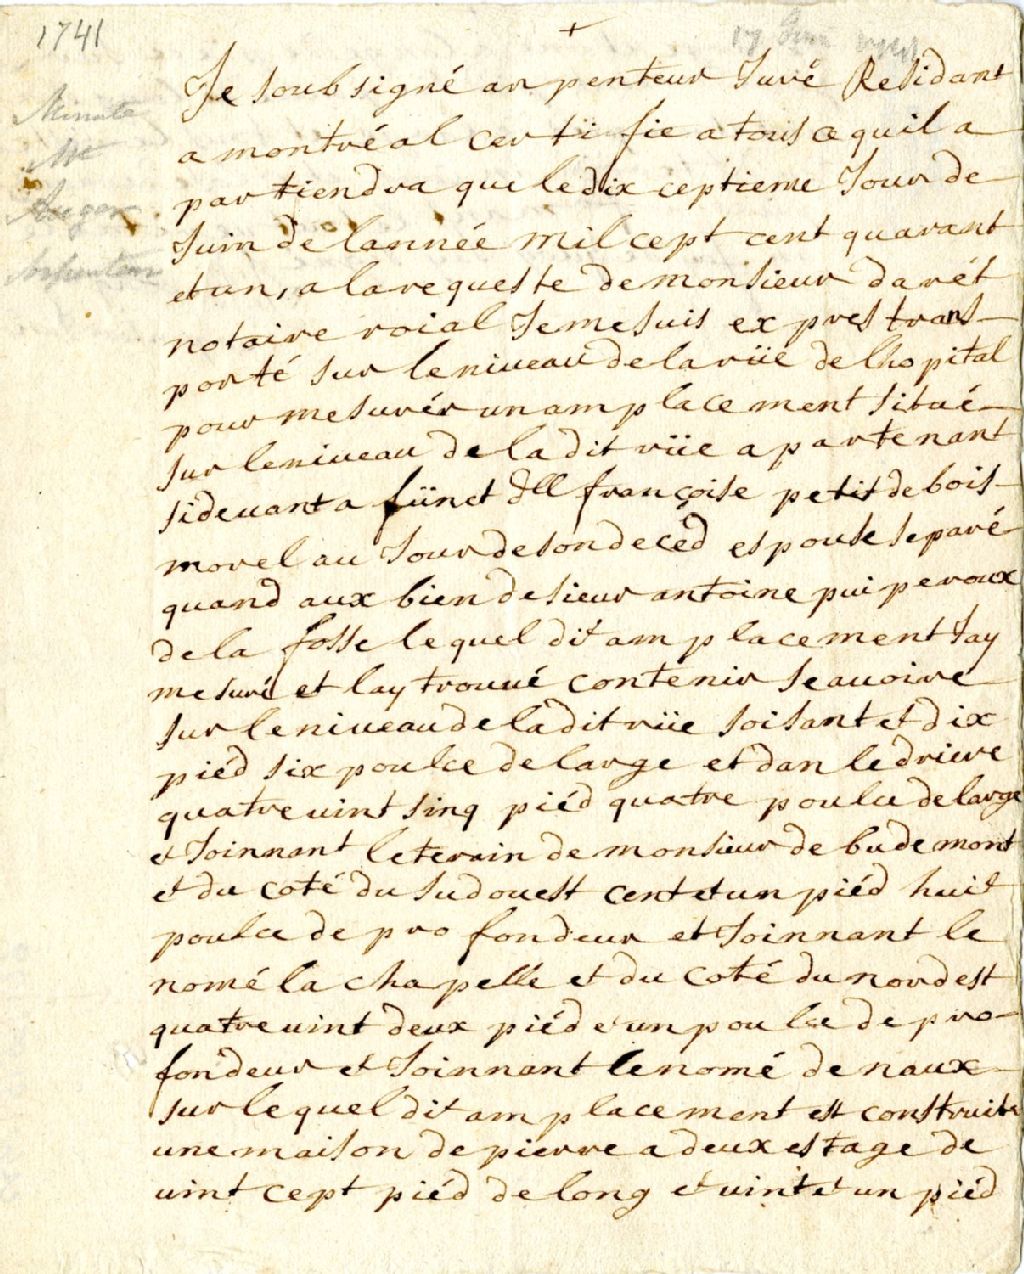 1741
17 Juin 1741
Minute
Me
Auger
Arpenteur
Je soubsigné arpenteur Juré Residant
a montréal certïfie a tous ce quil a
partiendra que le dix ceptieme Jour de
Juin de lannée mil cept cent quarant
et un, a la requeste de monsieur darét
notaire roial Je me suis expres trans-
porté sur le niveau de la rüe de lhopital
pour mesurér un amplacement situé
sur le niveau de la dit rüe apartenant
sidevant a fünct dll françoise petit de bois-
morel au Jour de son deced espouse separé
quand aux bien de sieur antoine puiperoux
de la fosse lequel dit amplacement Jay
mesuré et lay trouué contenir seauoire
sur le niveau de la dit rüe soisant et dix
piéd six poulce de large et dan le driere
quatre uint sinq piéd quatre poulce de large
et Joinnant le terain de monsieur de budemont
et du coté du sudouest cent et un piéd huit
poulce de profondeur et Joinnant le
nomé la chapelle et du coté du nordest
quatre uint deux piéd e un poulce de pro-
fondeur et Joinnant le nomé denaux
sur lequel dit amplacement est construite
une maison de pierre a deux estage de
uint cept piéd de long et uint et un piéd